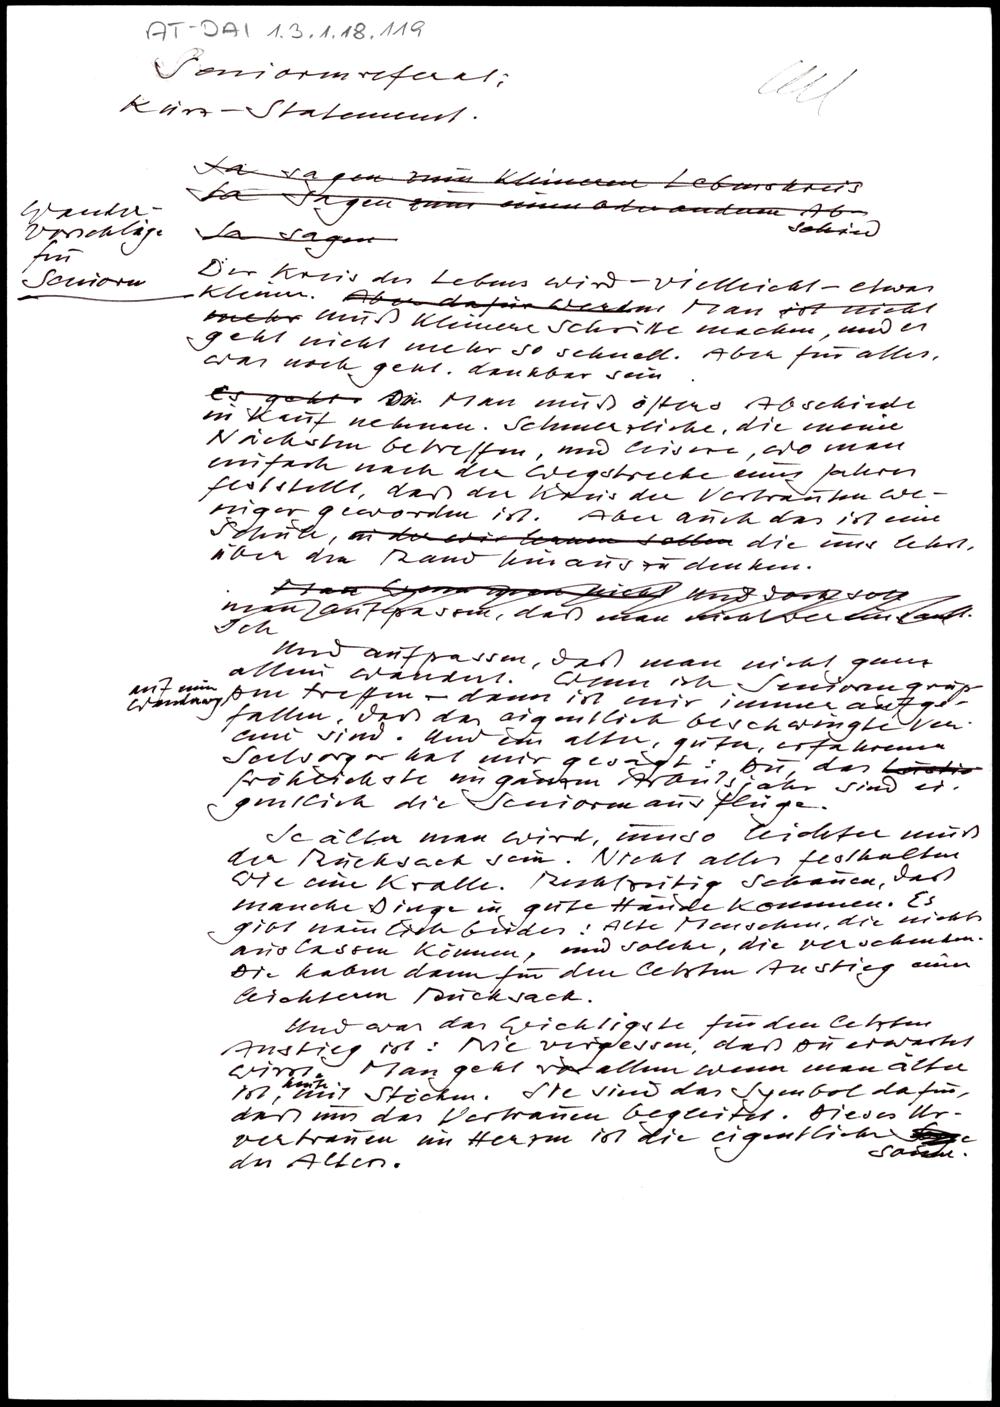 AT-DAI 1.3.1.18.119
Seniorenreferat:
Kurz-Statement.
Ja sagen zum kleineren Lebenskreis
Ja sagen zum einen oder anderen Ab-
schied
Ja sagen
Wander-
vorschläge
für
Senioren
Der Kreis des Lebens wird - vielleicht - etwas
kleiner. Aber dafür werden Man ist nicht
mehr muß kleinere Schritte machen, und es
geht nicht mehr so schnell. Aber für alles,
was noch geht, dankbar sein.
Es geht Die Man muß öfters Abschiede
in Kauf nehmen. Schmerzliche, die meine
Nächsten betreffen, und leisere, wo man
einfach nach der Wegstrecke eines Jahres
feststellt, daß der Kreis der Vertrauten we-
niger geworden ist. Aber auch das ist eine
Schule, in der wir lernen sollen die uns lehrt,
über den Rand hinauszudenken.
Man kann nicht und doch soll
man aufpassen, daß man nicht vereinsamt.
Ich
Und aufpassen, daß man nicht ganz
allein wandert. Wenn ich Seniorengrup-
auf einer
Wanderung
pen treffen - dann ist mir immer aufge-
fallen, daß das eigentlich beschwingte Ver-
eine sind. Und ein alter, guter, erfahrener
Seelsorger hat mir gesagt: Du, das Lustig
fröhlichste im ganzen Arbeitsjahr sind ei-
gentlich die Seniorenausflüge.
Je älter man wird, umso leichter muß
der Rucksack sein. Nicht alles festhalten
wie eine Kralle. Rechtzeitig schauen, daß
manche Dinge in gute Hände kommen. Es
gibt nämlich beides: Alte Menschen, die nichts
auslassen können, und solche, die verschenken.
Die haben dann für den letzten Anstieg einen
leichteren Rucksack.
Und was das Wichtigste für den letzten
Anstieg ist: Nie vergessen, daß Du erwartet
wirst. Man geht vor allem wenn man älter
ist, heute mit Stöcken. Sie sind das Symbol dafür,
daß uns das Vertrauen begleitet. Dieses Ur-
vertrauen im Herzen ist die eigentliche
Sonne.
des Alters.